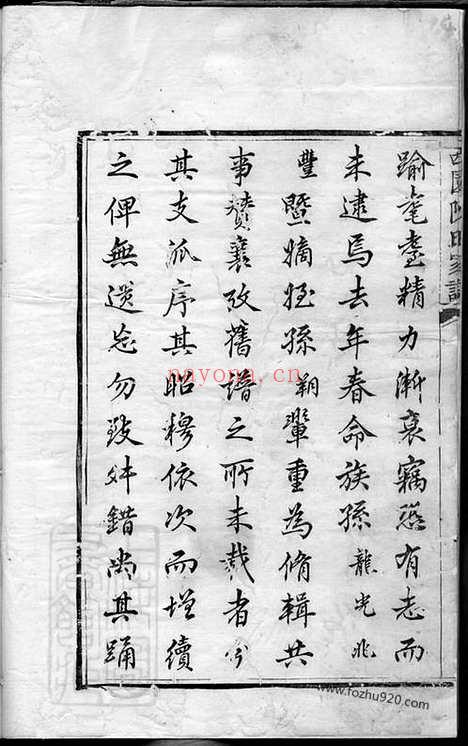 家譜
踰耄耋精力漸衰竊恐有志而
未逮焉去年春命族孫龍光兆
豐暨嫡姪孫翔輩重為脩輯共
事贊襄攷舊譜之所未載者分
其支派序其昭穆依次而增續
之俾無遺忘勿致舛錯尚其踊
nayona.cn
www.fozhu920.com